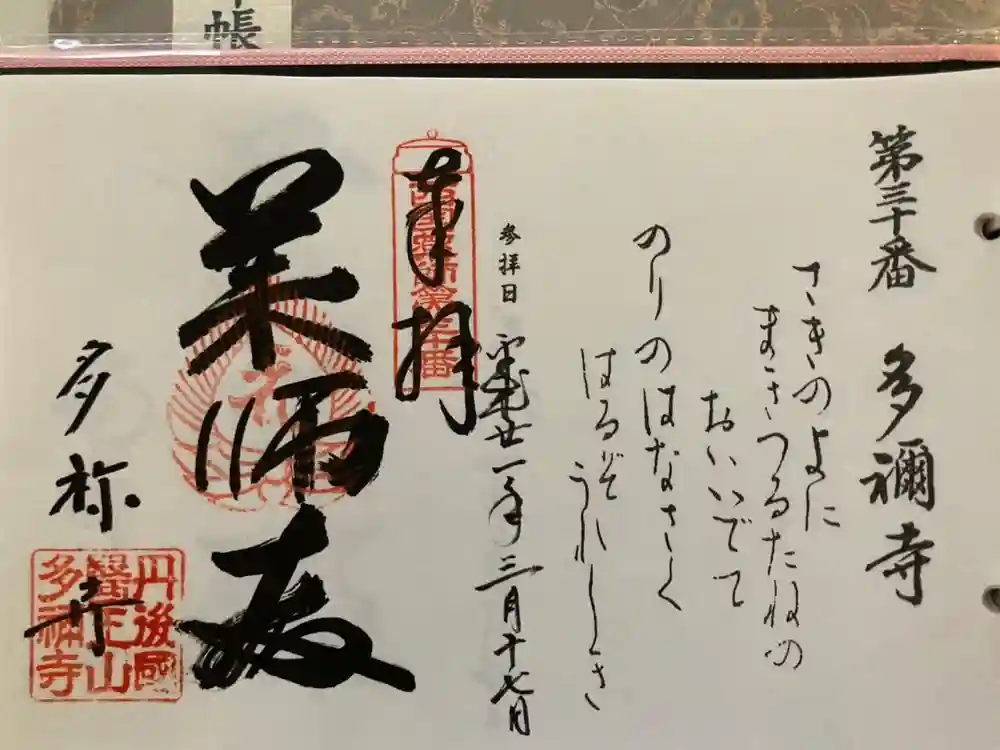 帳
第三十番 多禰寺
さきのよに
まきつるたねの
おいいでて
のりのはなさく
はるぞうれしき
参拝日 平成廿一年三月十七日
奉拝
西国薬師第三十番
薬師殿
多祢寺
丹後國
醫王山
多禰寺